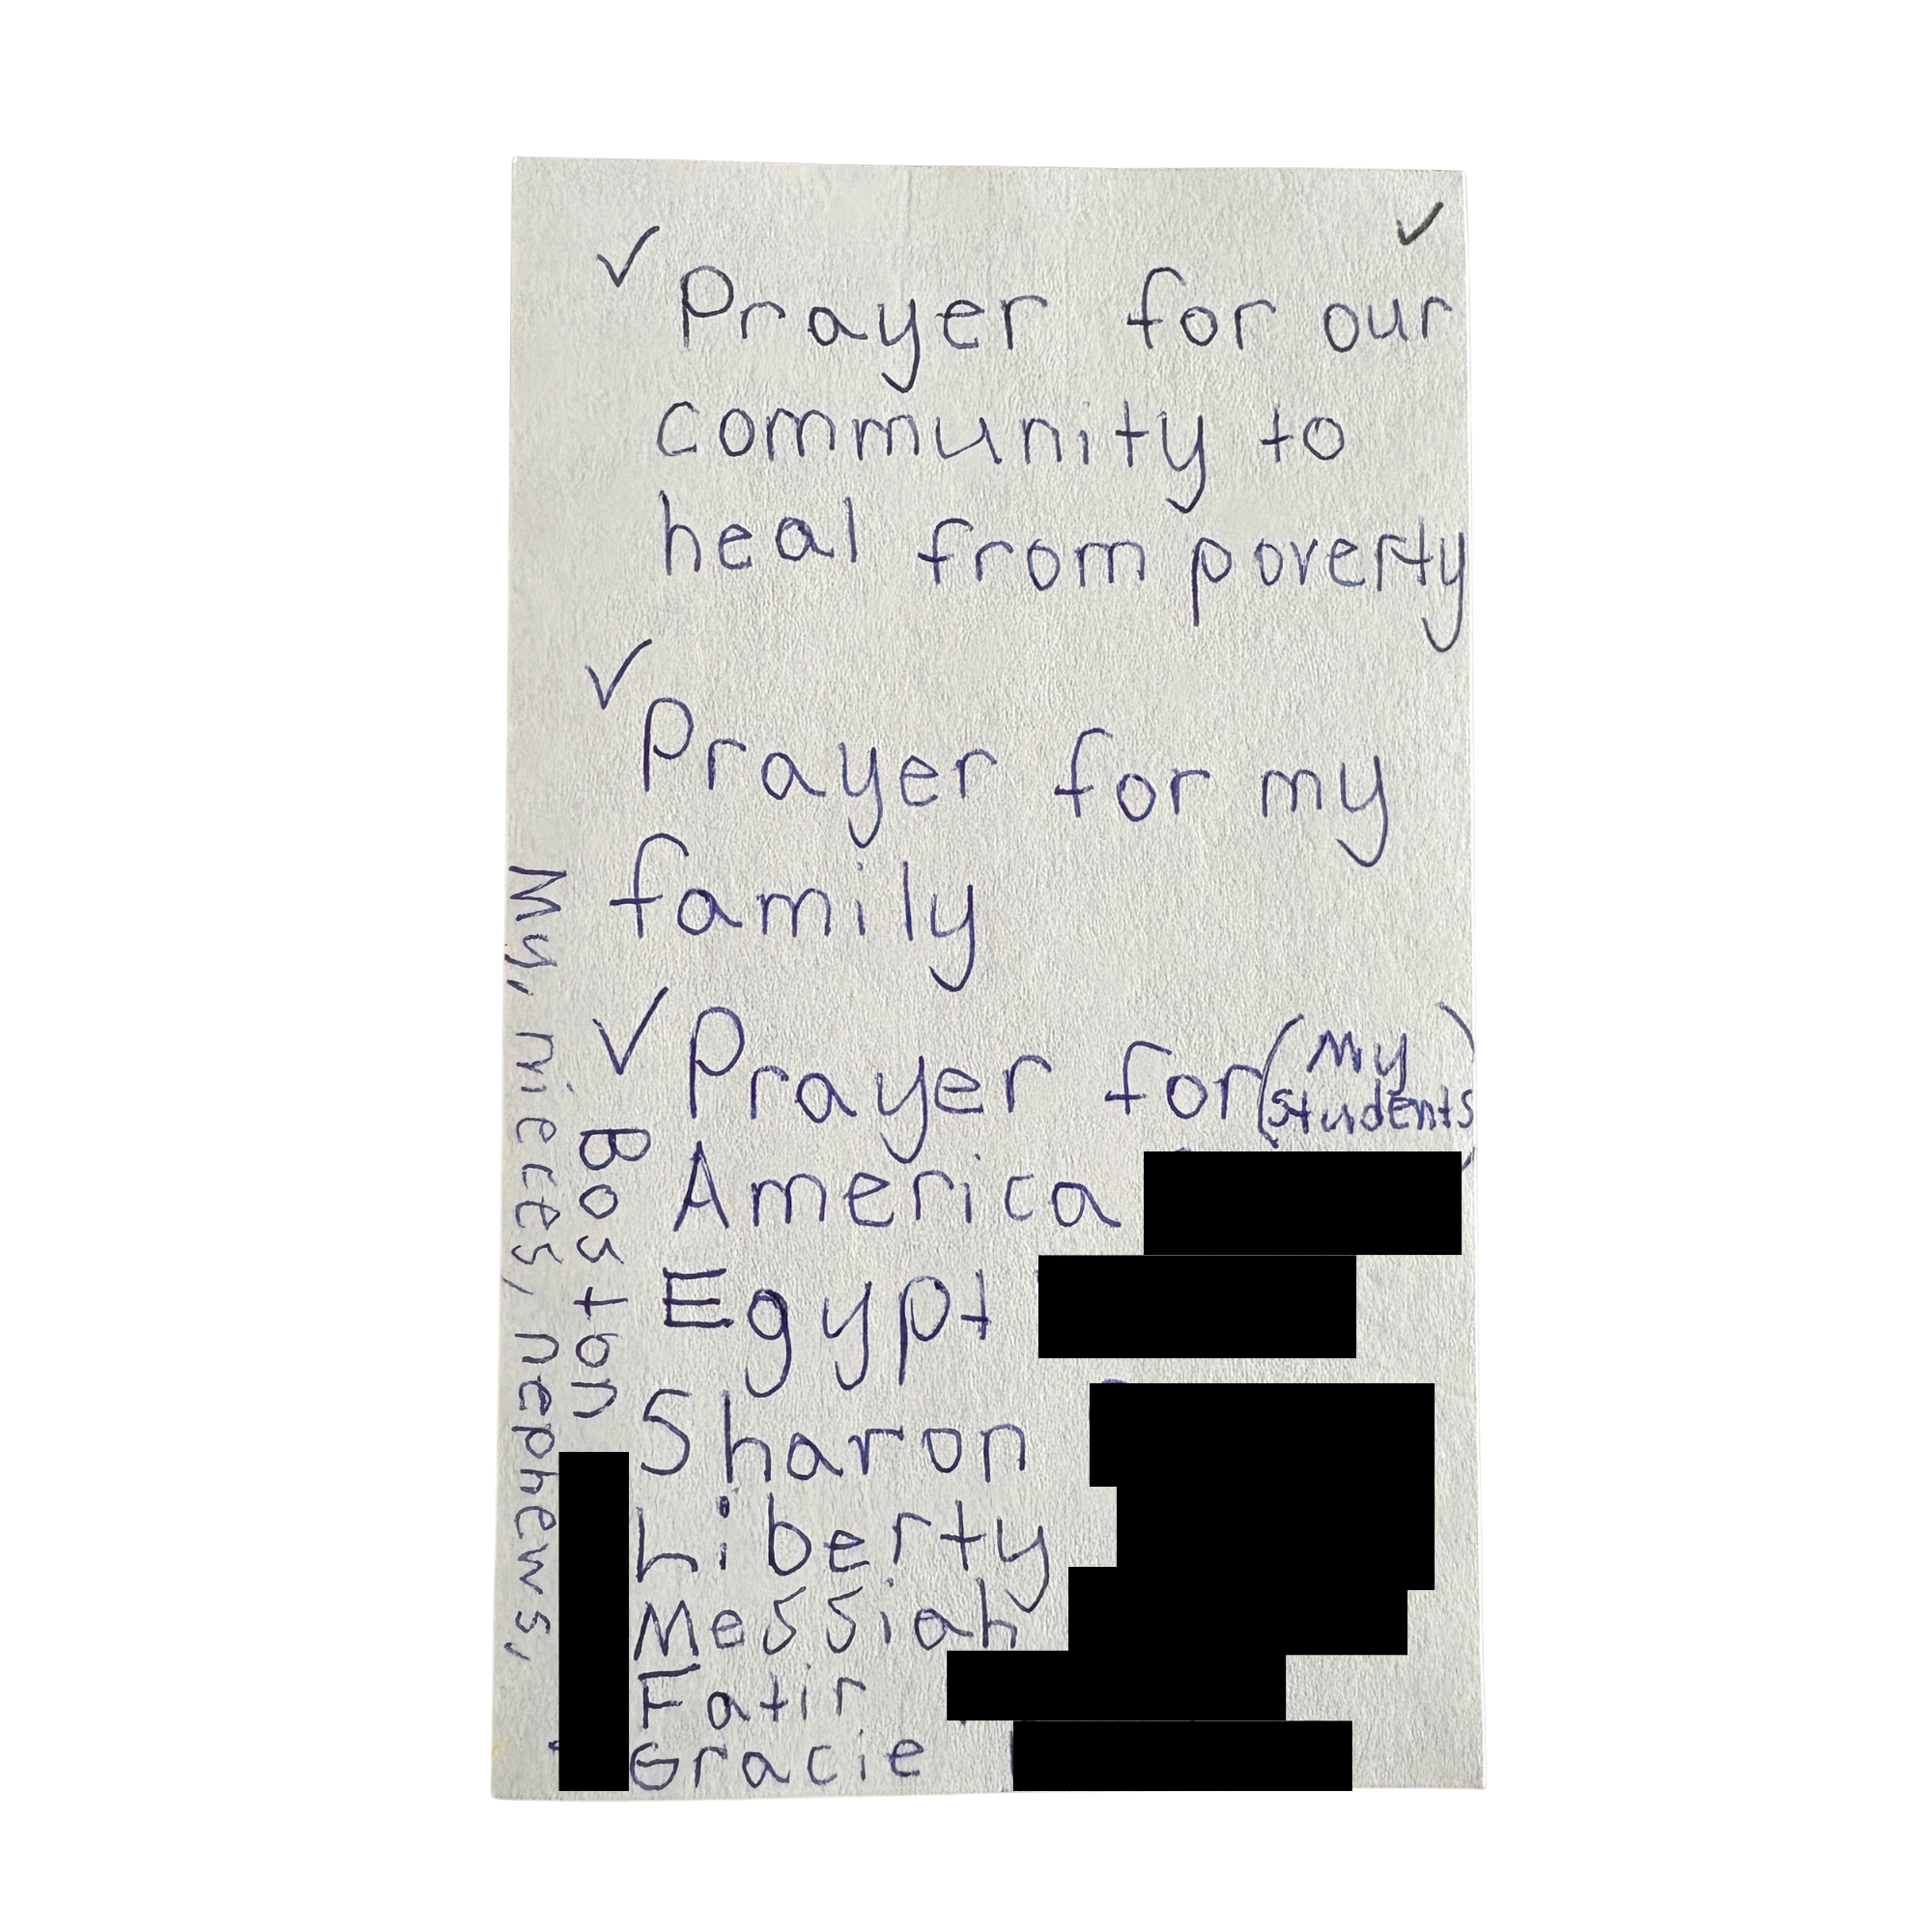 ✓
✓ Prayer for our
community to
heal from poverty
✓ Prayer for my
family
✓ Prayer for (My
students)
America
Egypt
Sharon
Liberty
Messiah
Fatir
Gracie
Boston
My, nieces, nephews,